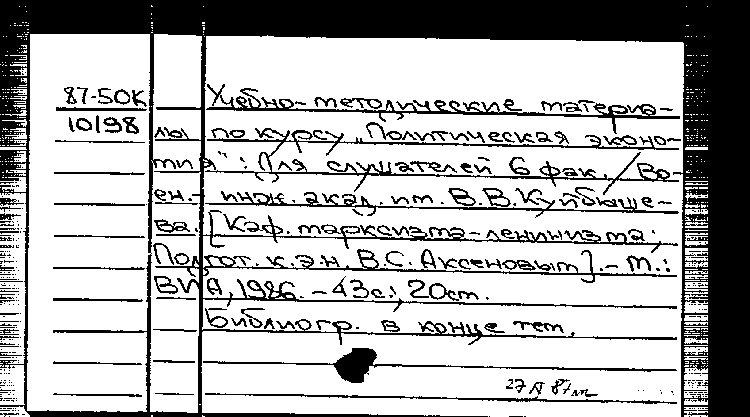 87-50К Учебно-методические материа-
10198 лы по курсу „Политическая эконо-
мия": Для слушателей 6 фак. / Во-
ен.-инж. акад. им. В.В.Куйбыше-
ва. [Каф. марксизма-ленинизма;
Подгот. к.э.н. В.С. Аксеновым]. – М.:
ВИА, 1986. – 43с.; 20см.
Библиогр. в конце тем.